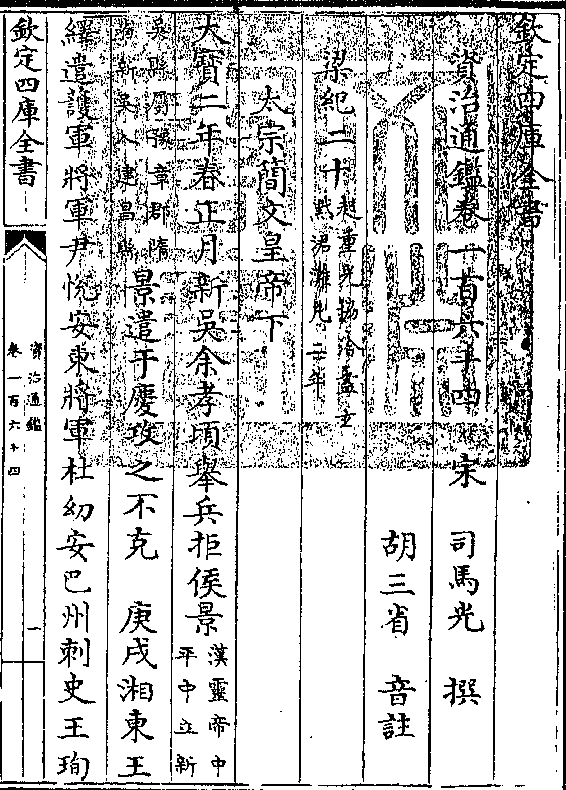 欽定四庫全書
資治通鑑卷一百六十四 宋 司馬光 撰
胡三省 音註
梁紀二十 起重光協洽盡玄黓涒灘凡二年
太宗簡文皇帝下
大寶二年春正月新吳余孝頃舉兵拒侯景 漢靈帝中平中立新
吳縣屬豫章郡隋 新吳入建昌縣 景遣于慶攻之不克 庚戌湘東王
繹遣護軍將軍尹悅安東將軍杜幼安巴州刺史王珣
欽定四庫全書
資治通鑑
卷一百六十四
一